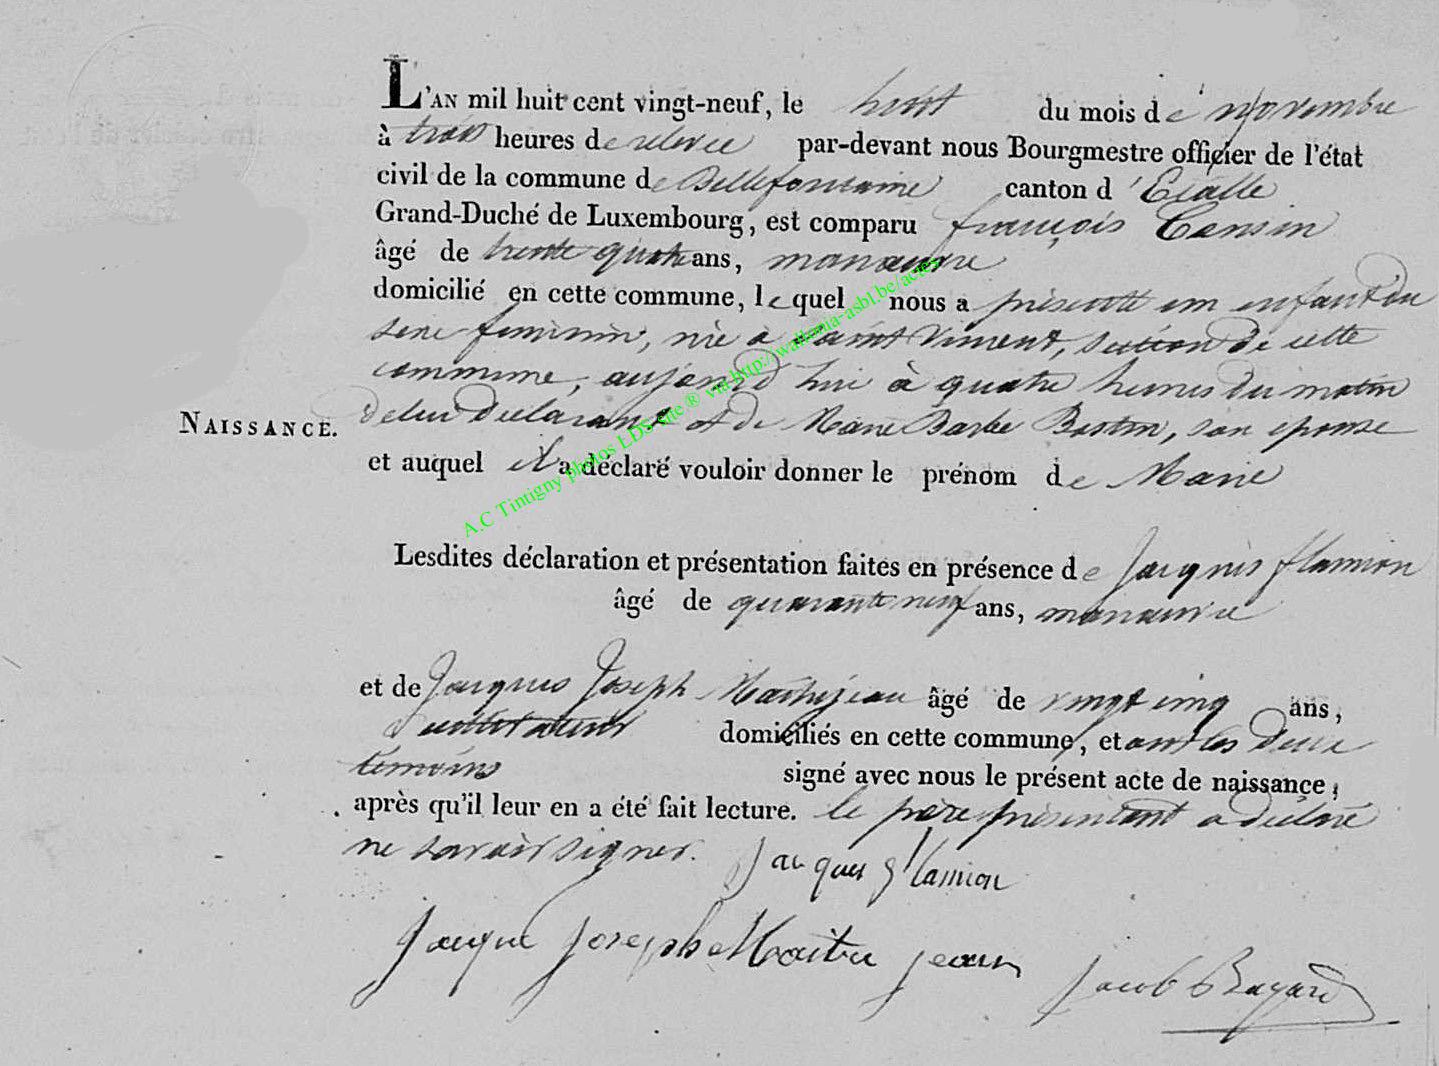 L'AN mil huit cent vingt-neuf, le huit du mois de novembre
à trois heures de relevée par-devant nous Bourgmestre officier de l'état
civil de la commune de Bellefontaine canton d'Etalle
Grand-Duché de Luxembourg, est comparu françois Cansin
âgé de trente quatre ans, manœuvre
domicilié en cette commune, lequel nous a présenté un enfant du
sexe feminin, née à Saint Vincent, section de cette
commune, aujourd'hui à quatre heures du matin
de lui déclarant et de Marie Barbe Bastin, son epouse
NAISSANCE.
et auquel il a déclaré vouloir donner le prénom de Marie
Lesdites déclaration et présentation faites en présence de Jacques flamion
âgé de quarante neuf ans, manœuvre
et de Jacques Joseph Maitrejean âgé de vingt cinq ans,
domiciliés en cette commune, et ont les deux
témoins signé avec nous le présent acte de naissance,
après qu'il leur en a été fait lecture. le père présentant a déclaré
ne savoir signer. Jacques flamion
Jacque Joseph Maitre jean Jacob Bayard
A.C Tintigny photos LDS site ® via http://wallonia-asbl.be/actes